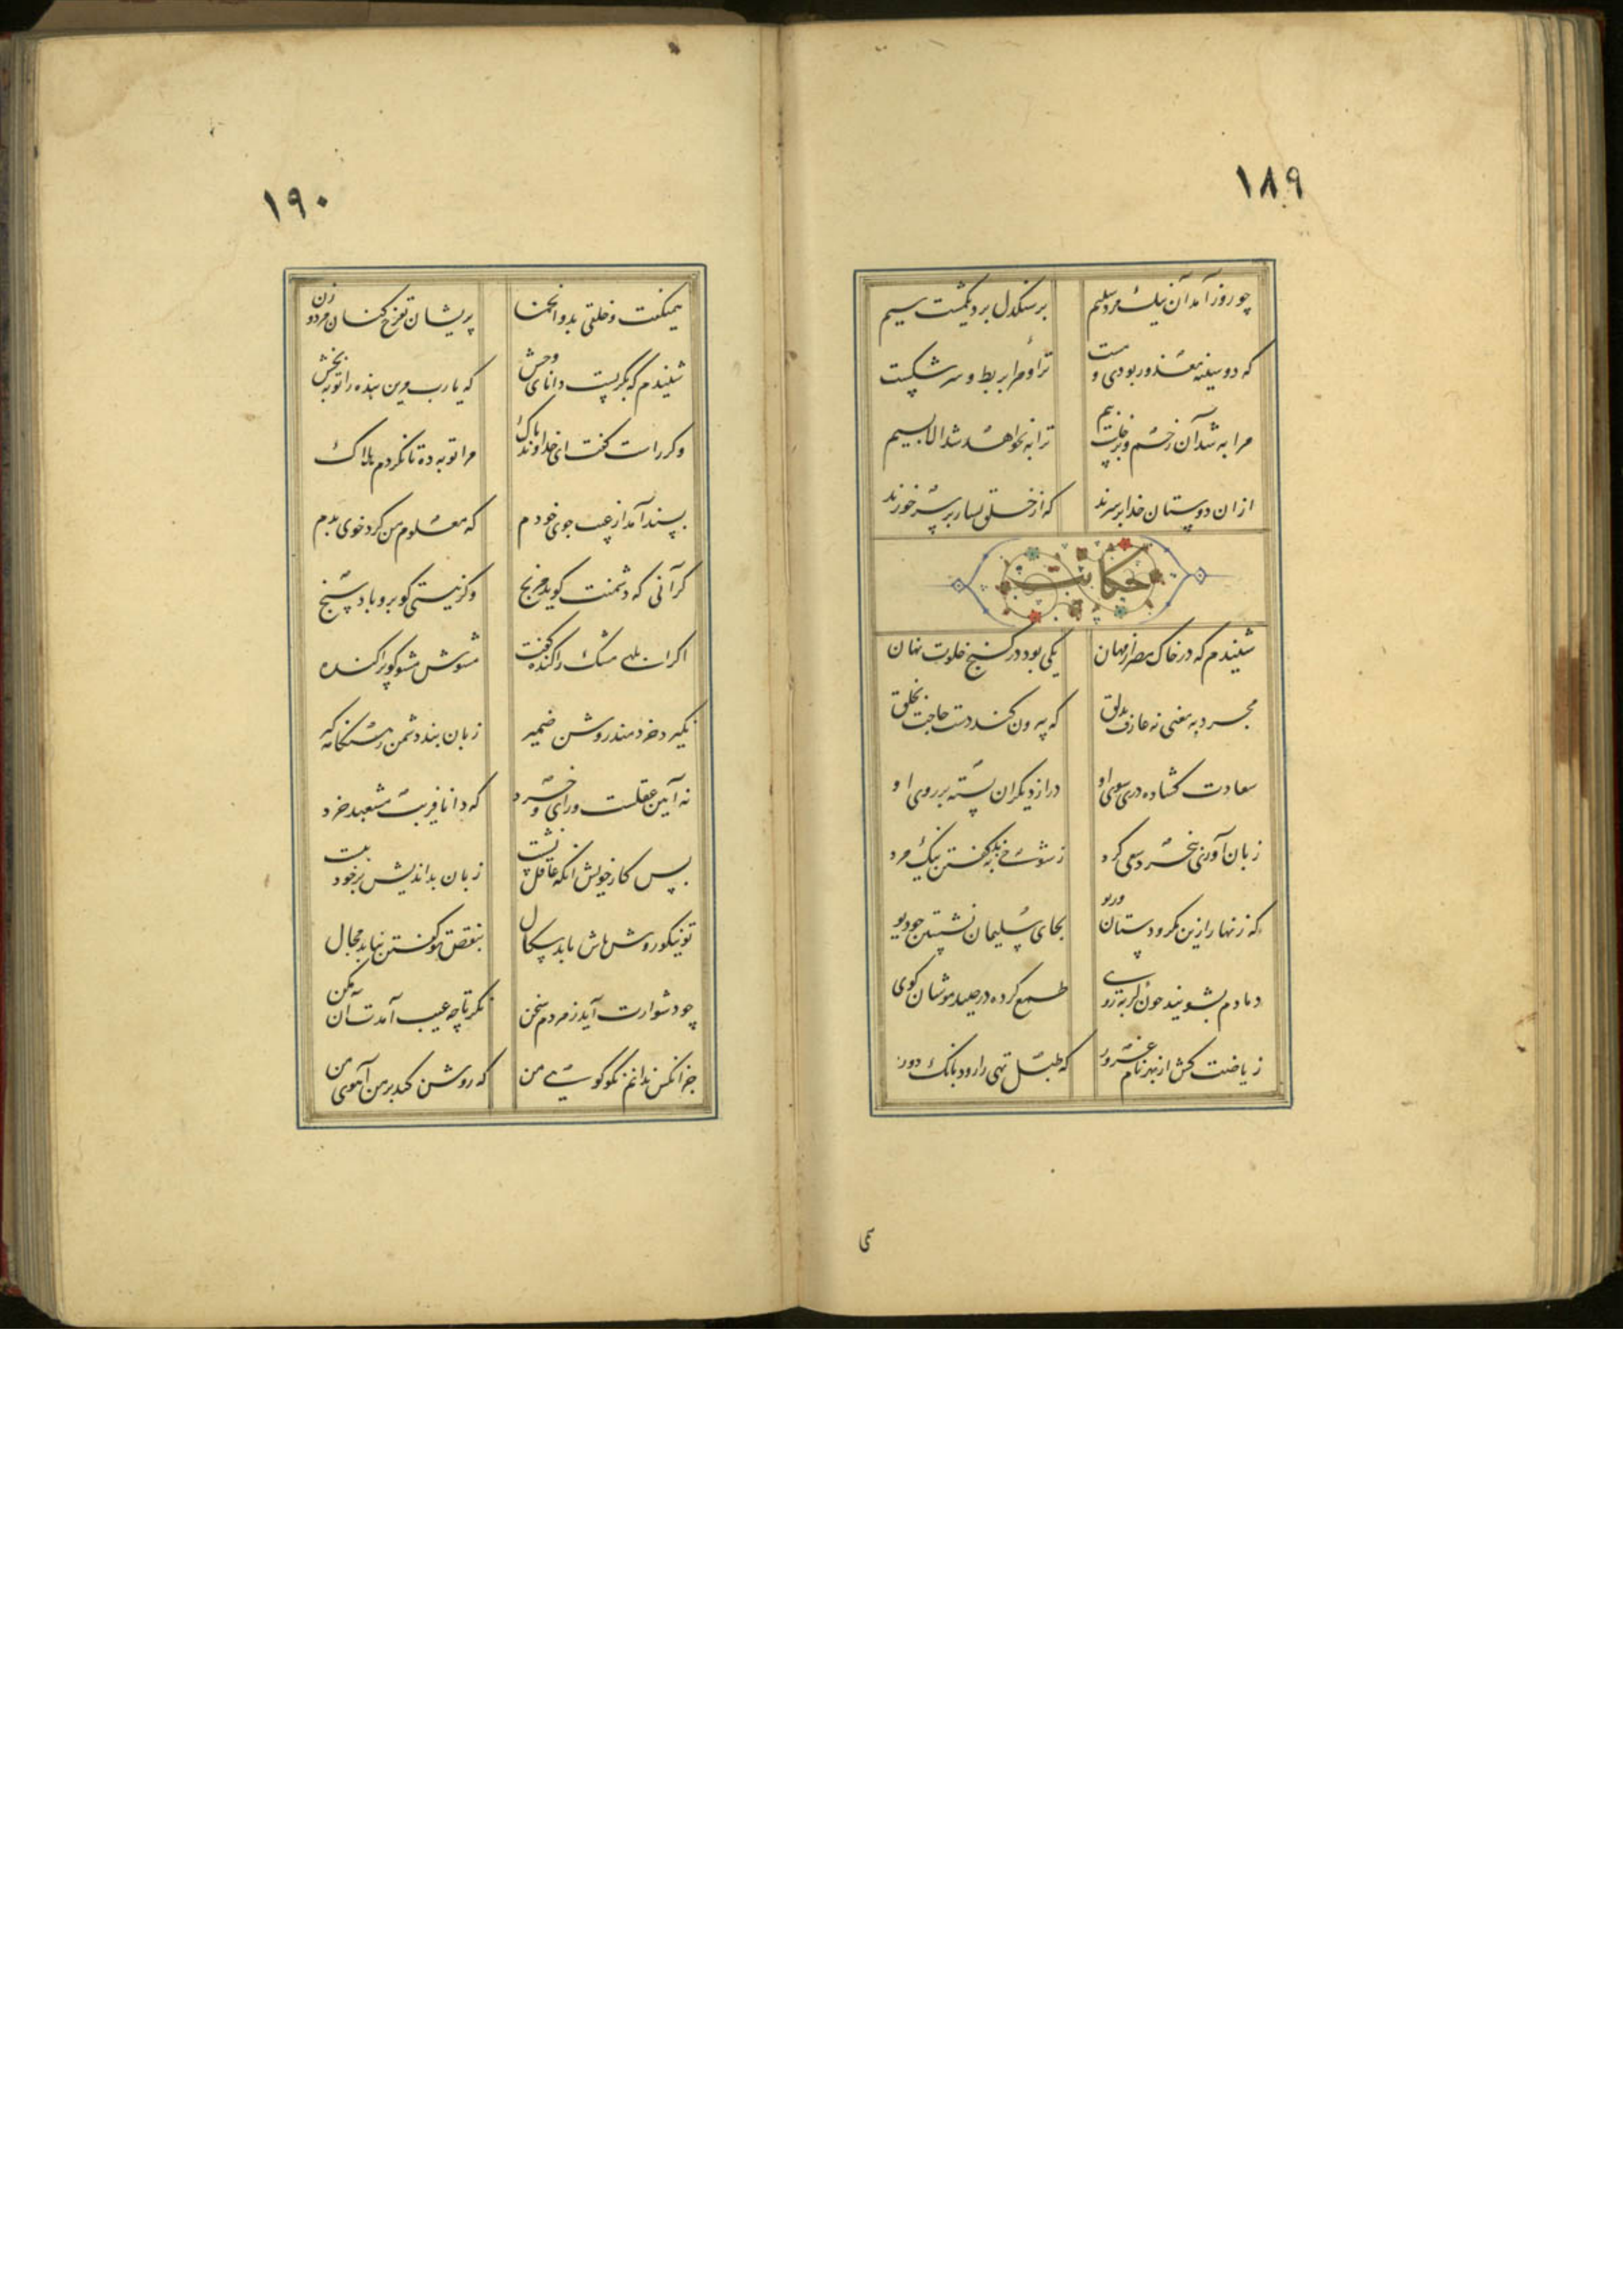 ۱۸۹
چو روز آمد آن نیک مرد سلیم بر سنکدل برد یکمشت سیم
که دوشینه معذور بودی و مست ترا و مرا بربط و سر شکست
مرا به شد آن زخم و برخاست بیم ترا به نخواهد شد الا بسیم
ازان دوستان خدا بر سرند که از خلق بسیار بر سر خورند
حکایت
شنیدم که در خاک وخش از مهان یکی بود در کنج خلوت نهان
مجرد به معنی نه عارف بدلق که بیرون کند دست حاجت بخلق
سعادت کشاده دری سوی او در از دیکران بسته بر روی او
زبان آوری بیخرد سعی کرد ز شوخی به بد کفتن نیک مرد
که زنهار ازین مکر و دستان و ریو بجای سلیمان نشستن چو دیو
دمادم بشویند چون کربه روی طمع کرده در صید موشان کوی
ریاضت کش از بهر نام و غرور که طبل تهی را رود بانک دور
می
۱۹۰
همیکفت و خلقی بدو انجمن پریشان تفرج کنان مرد و زن
شنیدم که بکریست دانای وخش که یارب مرین بنده را توبه بخش
وکر راست کفت ای خداوند پاک مرا توبه ده تا نکردم هلاک
پسند آمد از عیب جوی خودم که معلوم من کرد خوی بدم
کر آنی که دشمنت کوید مرنج وکر نیستی کو برو باد سنج
اکر ابلهی مشک را کنده کفت مشوش مشو کو پراکنده
نکیرد خردمند روشن ضمیر زبان بند دشمن ز هنکامه کیر
نه آیین عقلست و رای و خرد که دانا فریب مشعبد خرد
پس کار خویش آنکه عاقل نشست زبان بداندیش بر خود ببست
تو نیکو روش باش تا بدسکال بنقص تو کفتن نیابد مجال
چو دشوارت آید ز مردم سخن نکر تا چه عیب آمدت آن مکن
جز آنکس ندانم نکو کوی من که روشن کند بر من آهوی من